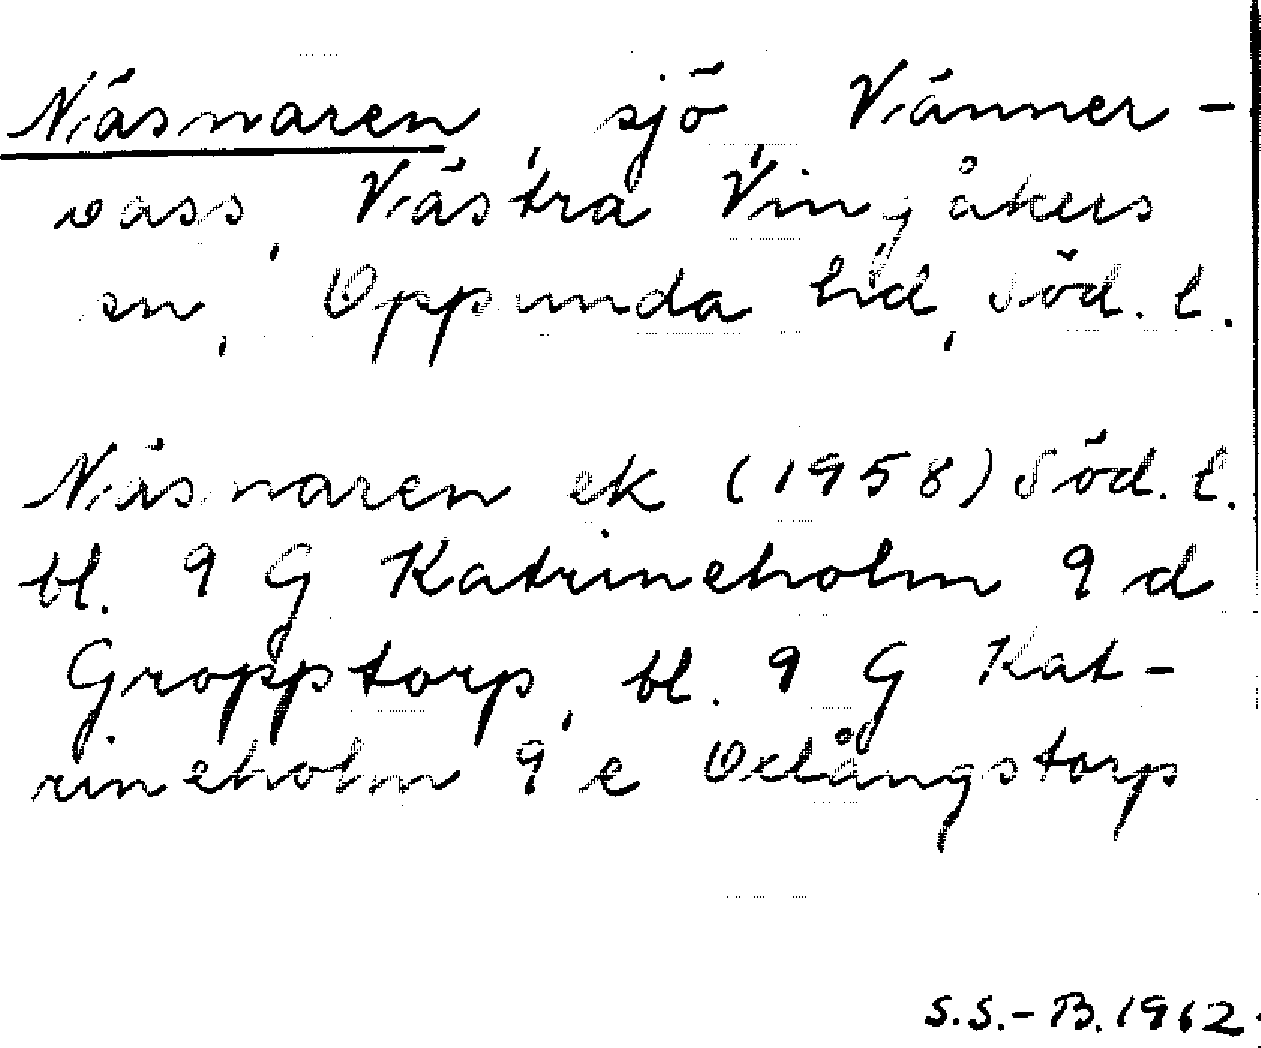 Näsnaren, sjö, Vänner-
vass, Västra Vingåkers
sn, Oppunda hd, Söd. l.
Näsnaren ek (1958) Söd. l.
bl. 9 G Katrineholm 9 d
Gropptorp, bl. 9 G Kat-
rineholm 9 e Oxlångstorp
S.S.-B. 1962.